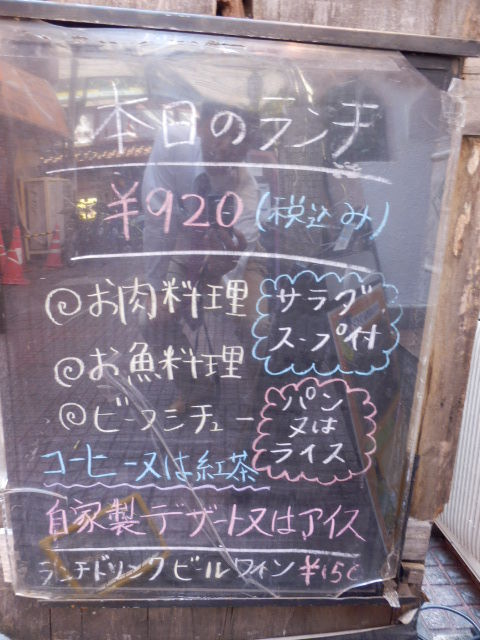 本日のランチ
¥920(税込み)
お肉料理
サラダ
スープ付
お魚料理
ビーフシチュー
パン
又は
ライス
コーヒー又は紅茶
自家製デザート又はアイス
ランチドリンクビールワイン¥150